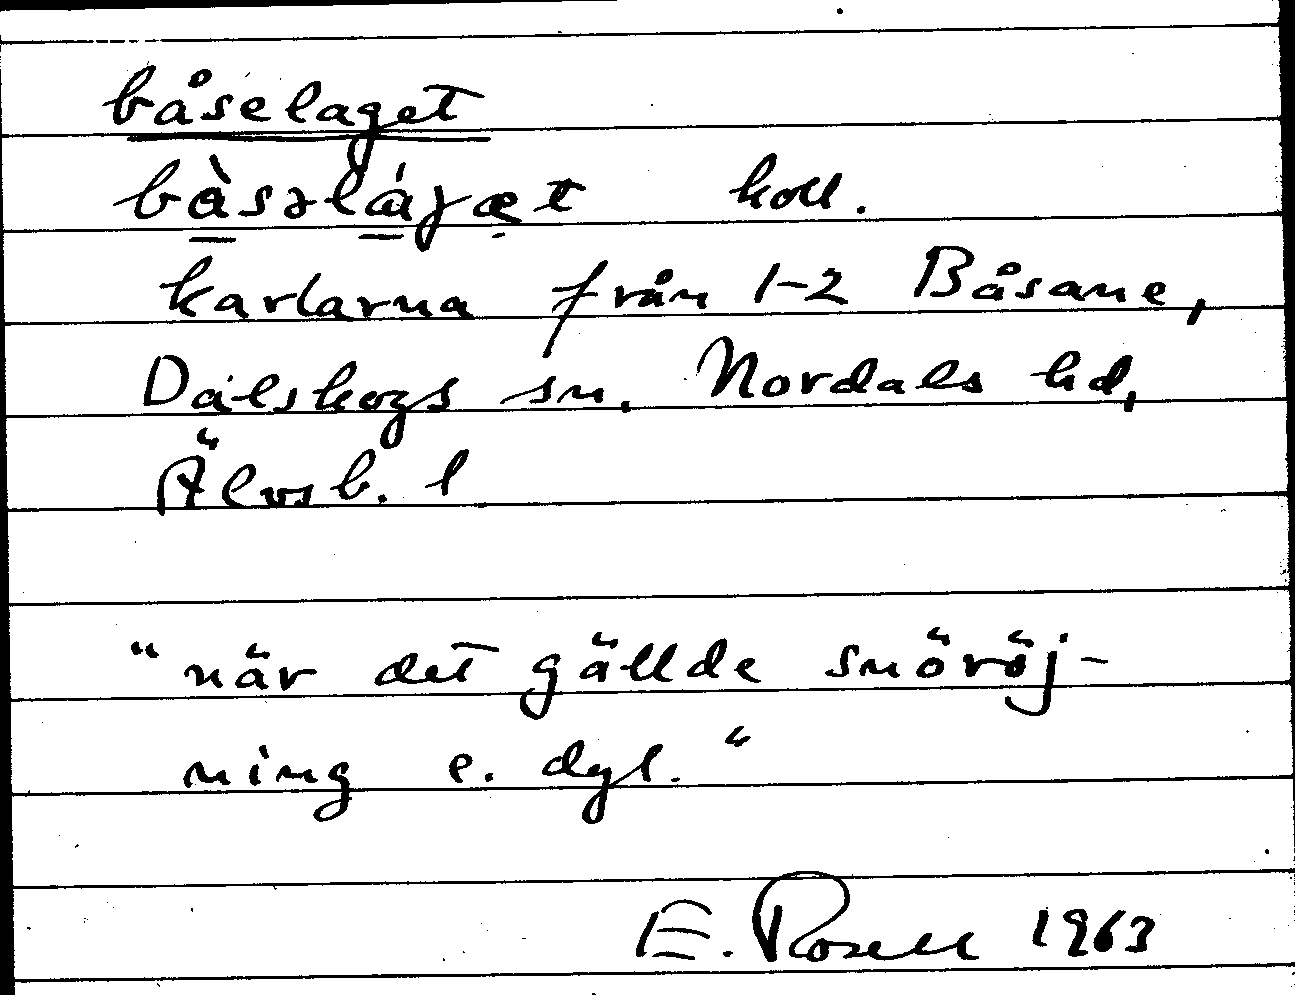 båselaget
bàsəláγæt koll.
karlarna från 1-2 Båsane,
Dalskogs sn. Nordals hd,
Älvsb. l
"när det gällde snöröj-
ning e. dyl."
E. Rosell 1963